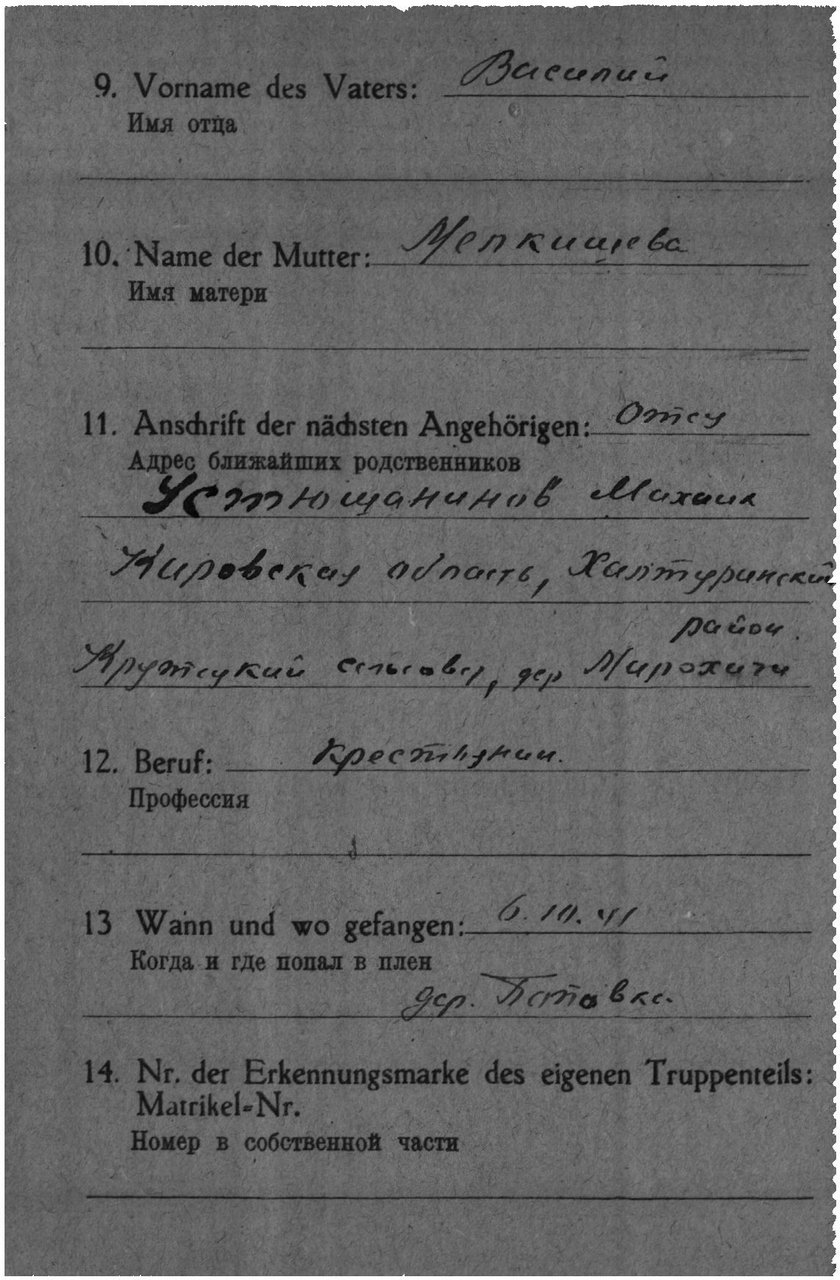 9. Vorname des Vaters: Василий
Имя отца
10. Name der Mutter: Мелкишева
Имя матери
11. Anschrift der nächsten Angehörigen: Отцу
Адрес ближайших родственников
Устющанинов Михаил
Кировская область, Халтуринский
район.
Кружецкий сельсовет, дер Мирохичи
12. Beruf: Крестьянин.
Профессия
13 Wann und wo gefangen: 6.10.41
Когда и где попал в плен
дер.
14. Nr. der Erkennungsmarke des eigenen Truppenteils:
Matrikel-Nr.
Номер в собственной части